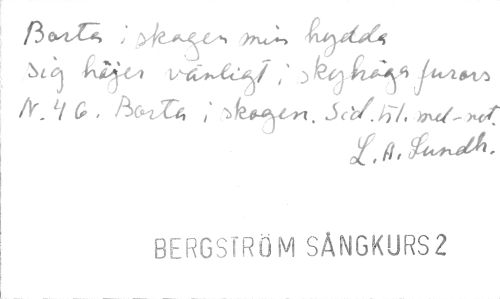 Borta i skogen min hydda
sig höjer vänligt i skyhöga furors
N. 46. Borta i skogen. Sid. till. mel-not.
L. A. Lundh.
BERGSTRÖM SÅNGKURS 2